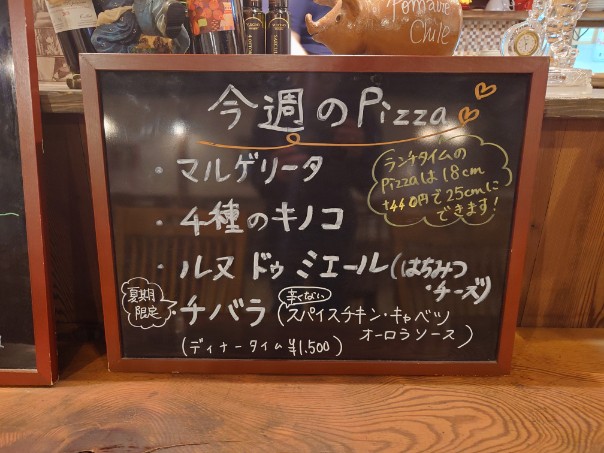 Pomaire
Chile
今週のPizza
・マルゲリータ
ランチタイムの
Pizzaは18cm
+440円で25cmに
できます!
・4種のキノコ
・ルヌ ドゥ ミエール(はちみつ
・チーズ)
夏期
限定
・チバラ
辛くない
(スパイスチキン・キャベツ
オーロラソース)
(ディナータイム ¥1,500)